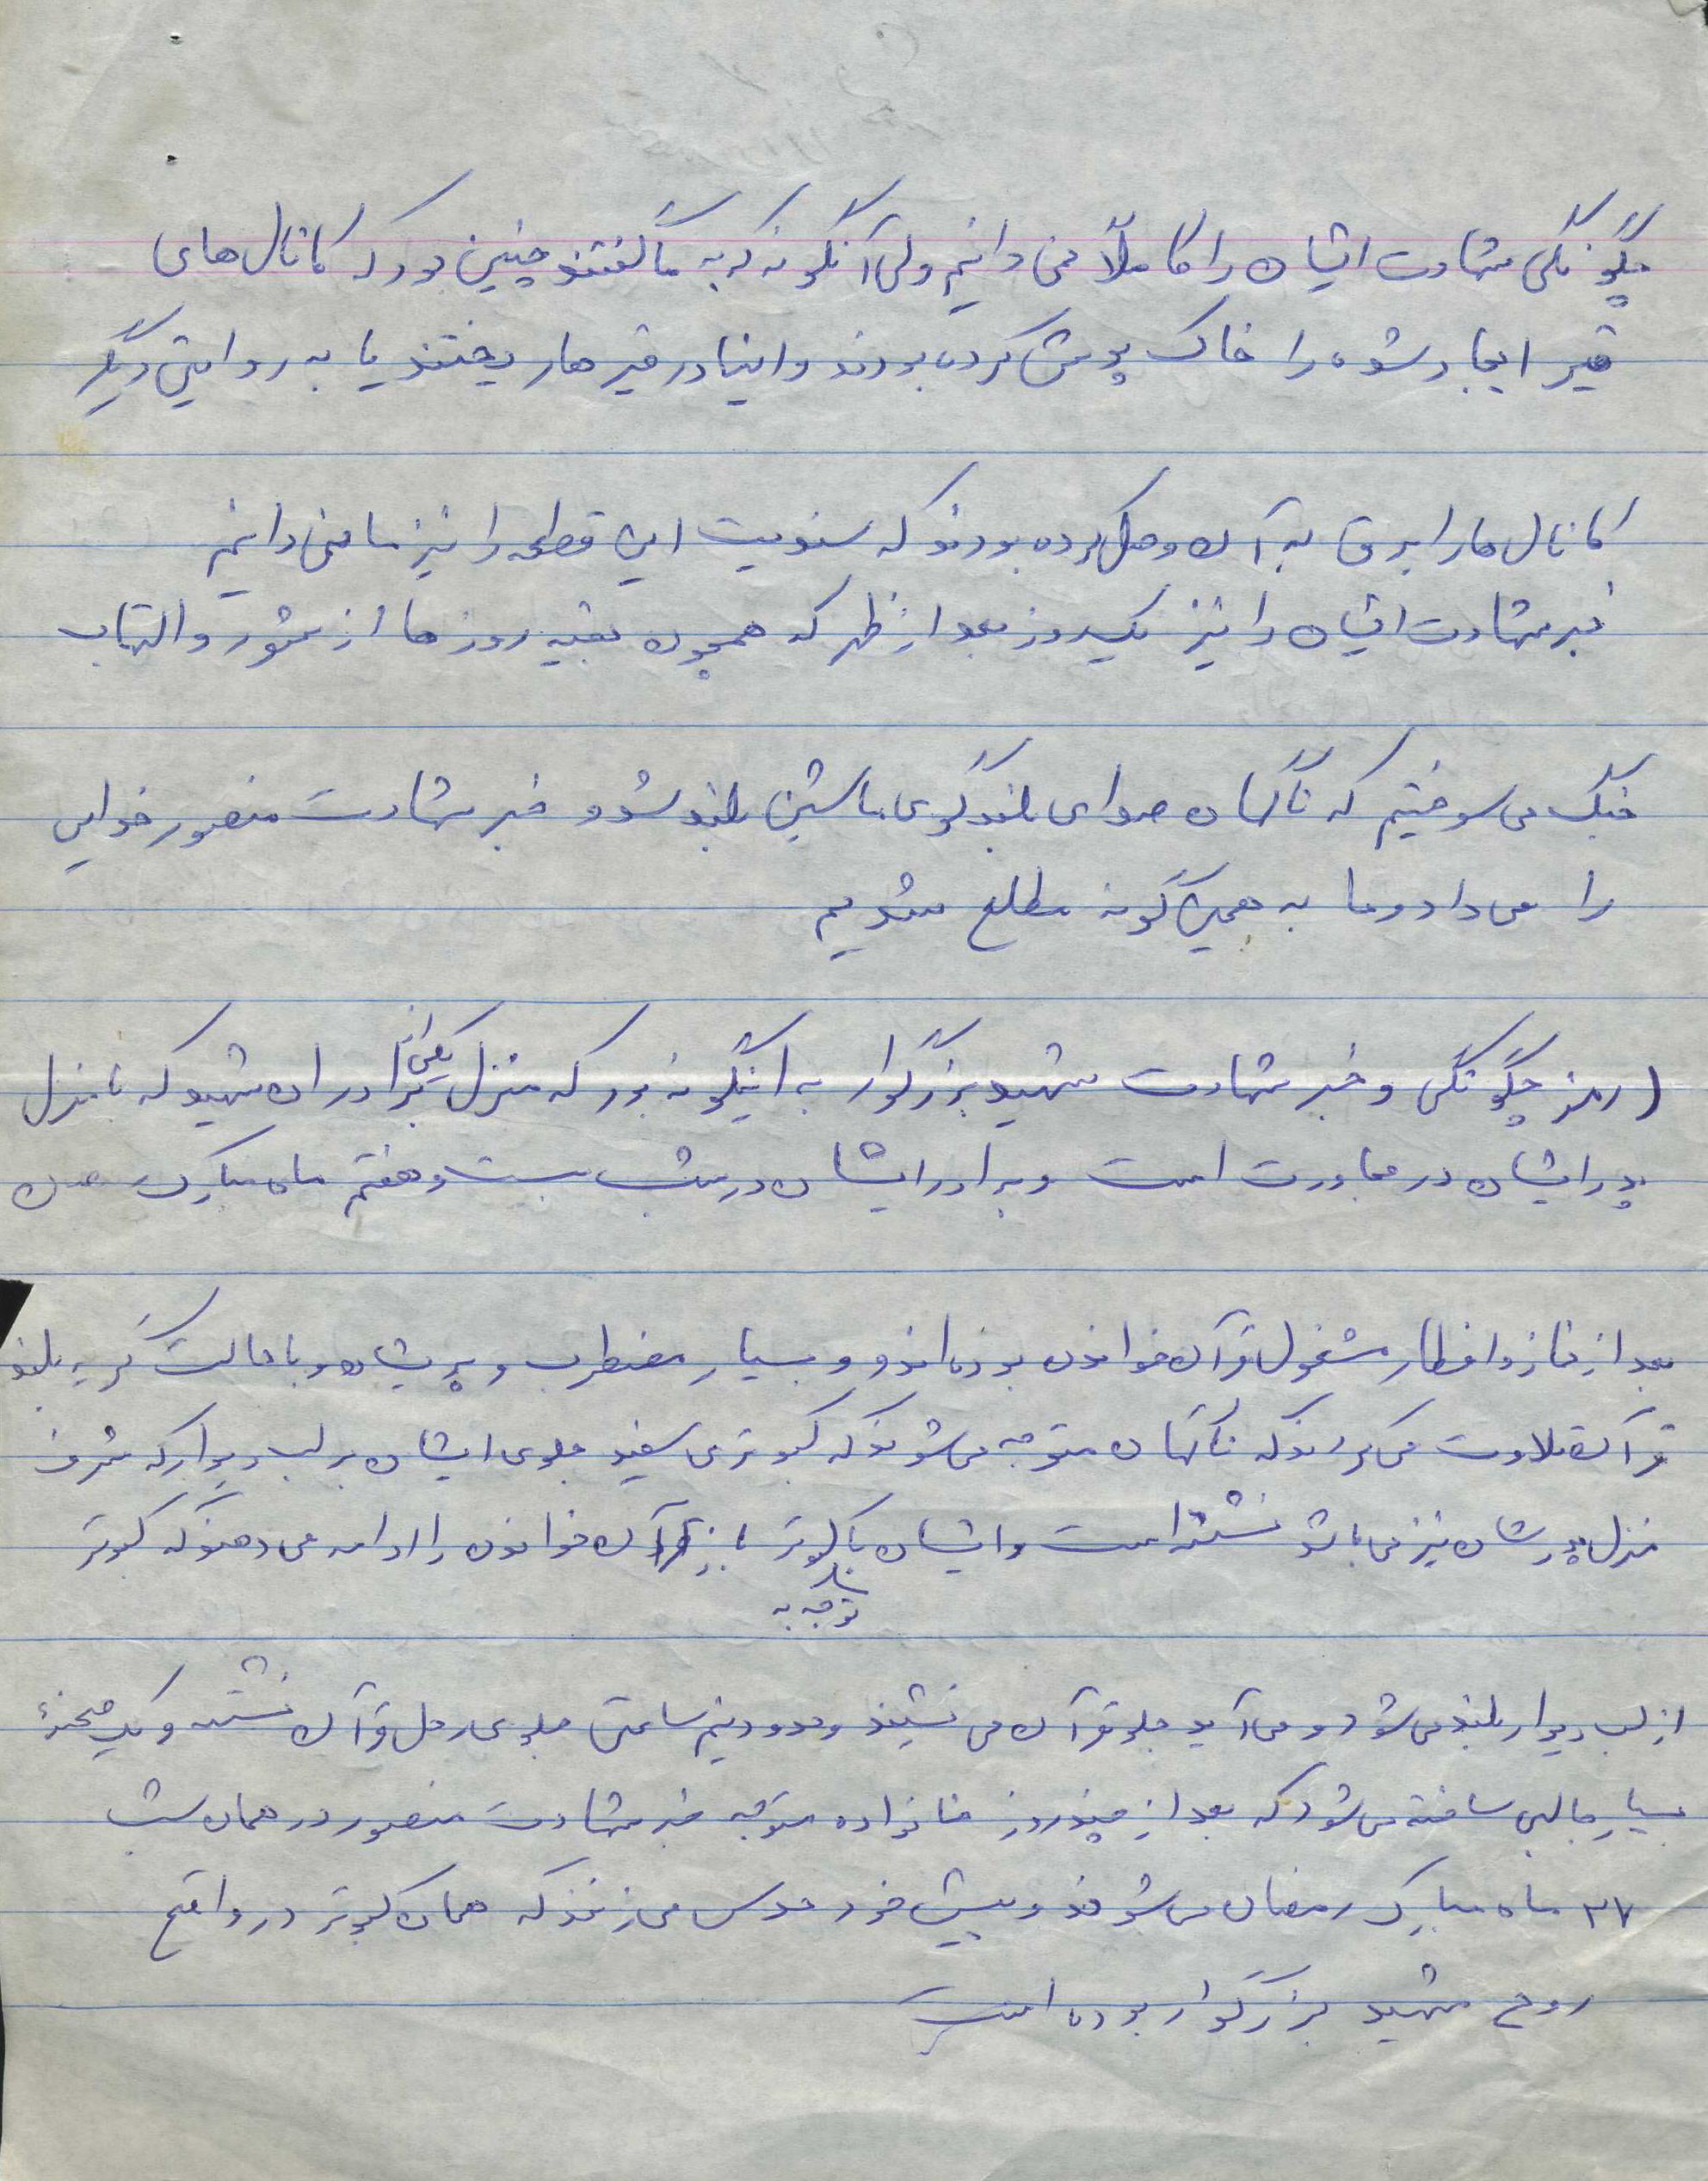 چگونگی شهادت ایشان را کاملاً نمی دانیم ولی آنگونه که به ما گفتند چنین بود که کانال های
قیر ایجاد شده را خاک پوش کرده بودند و اینها در قیر ها ریختند یا به روایتی دیگر
کانال ها را برق به آن وصل کرده بودند که سندیت این قطعه را نیز ما نمی دانیم
خبر شهادت ایشان را نیز یکروز بعد از ظهر که همچون بقیه روزها از شور و التهاب
جنگ می سوختیم که ناگهان صدای بلندگوی ماشین بلند شد و خبر شهادت منصور خدایی
را می داد و ما به همین گونه مطلع شدیم
(رمز چگونگی و خبر شهادت شهید بزرگوار به اینگونه بود که منزل یکی از برادران شهید که با منزل
پدر ایشان در مجاورت است و برادر ایشان در شب بیست و هفتم ماه مبارک
بعد از نماز و افطار مشغول قرآن خواندن بوده اند و بسیار مضطرب و پریشان و با حالت گریه بلند
قرآن تلاوت می کردند که ناگهان متوجه می شوند که کبوتری سفید جلوی ایشان بر لب دیوار که مشرف
منزل پدرشان نیز می باشد نشسته است و ایشان با توجه به کبوتر باز قرآن خواندن را ادامه می دهند که کبوتر
از لب دیوار بلند می شود و می آید جلو قرآن می نشیند و حدود نیم ساعتی جلوی رحل قرآن نشسته و یک صحنهٔ
بسیار جالبی ساخته می شود که بعد از چند روز خانواده متوجه خبر شهادت منصور در همان شب
۲۷ ماه مبارک رمضان می شوند و پیش خود حدس می زنند که همان کبوتر در واقع
روح شهید بزرگوار بوده است